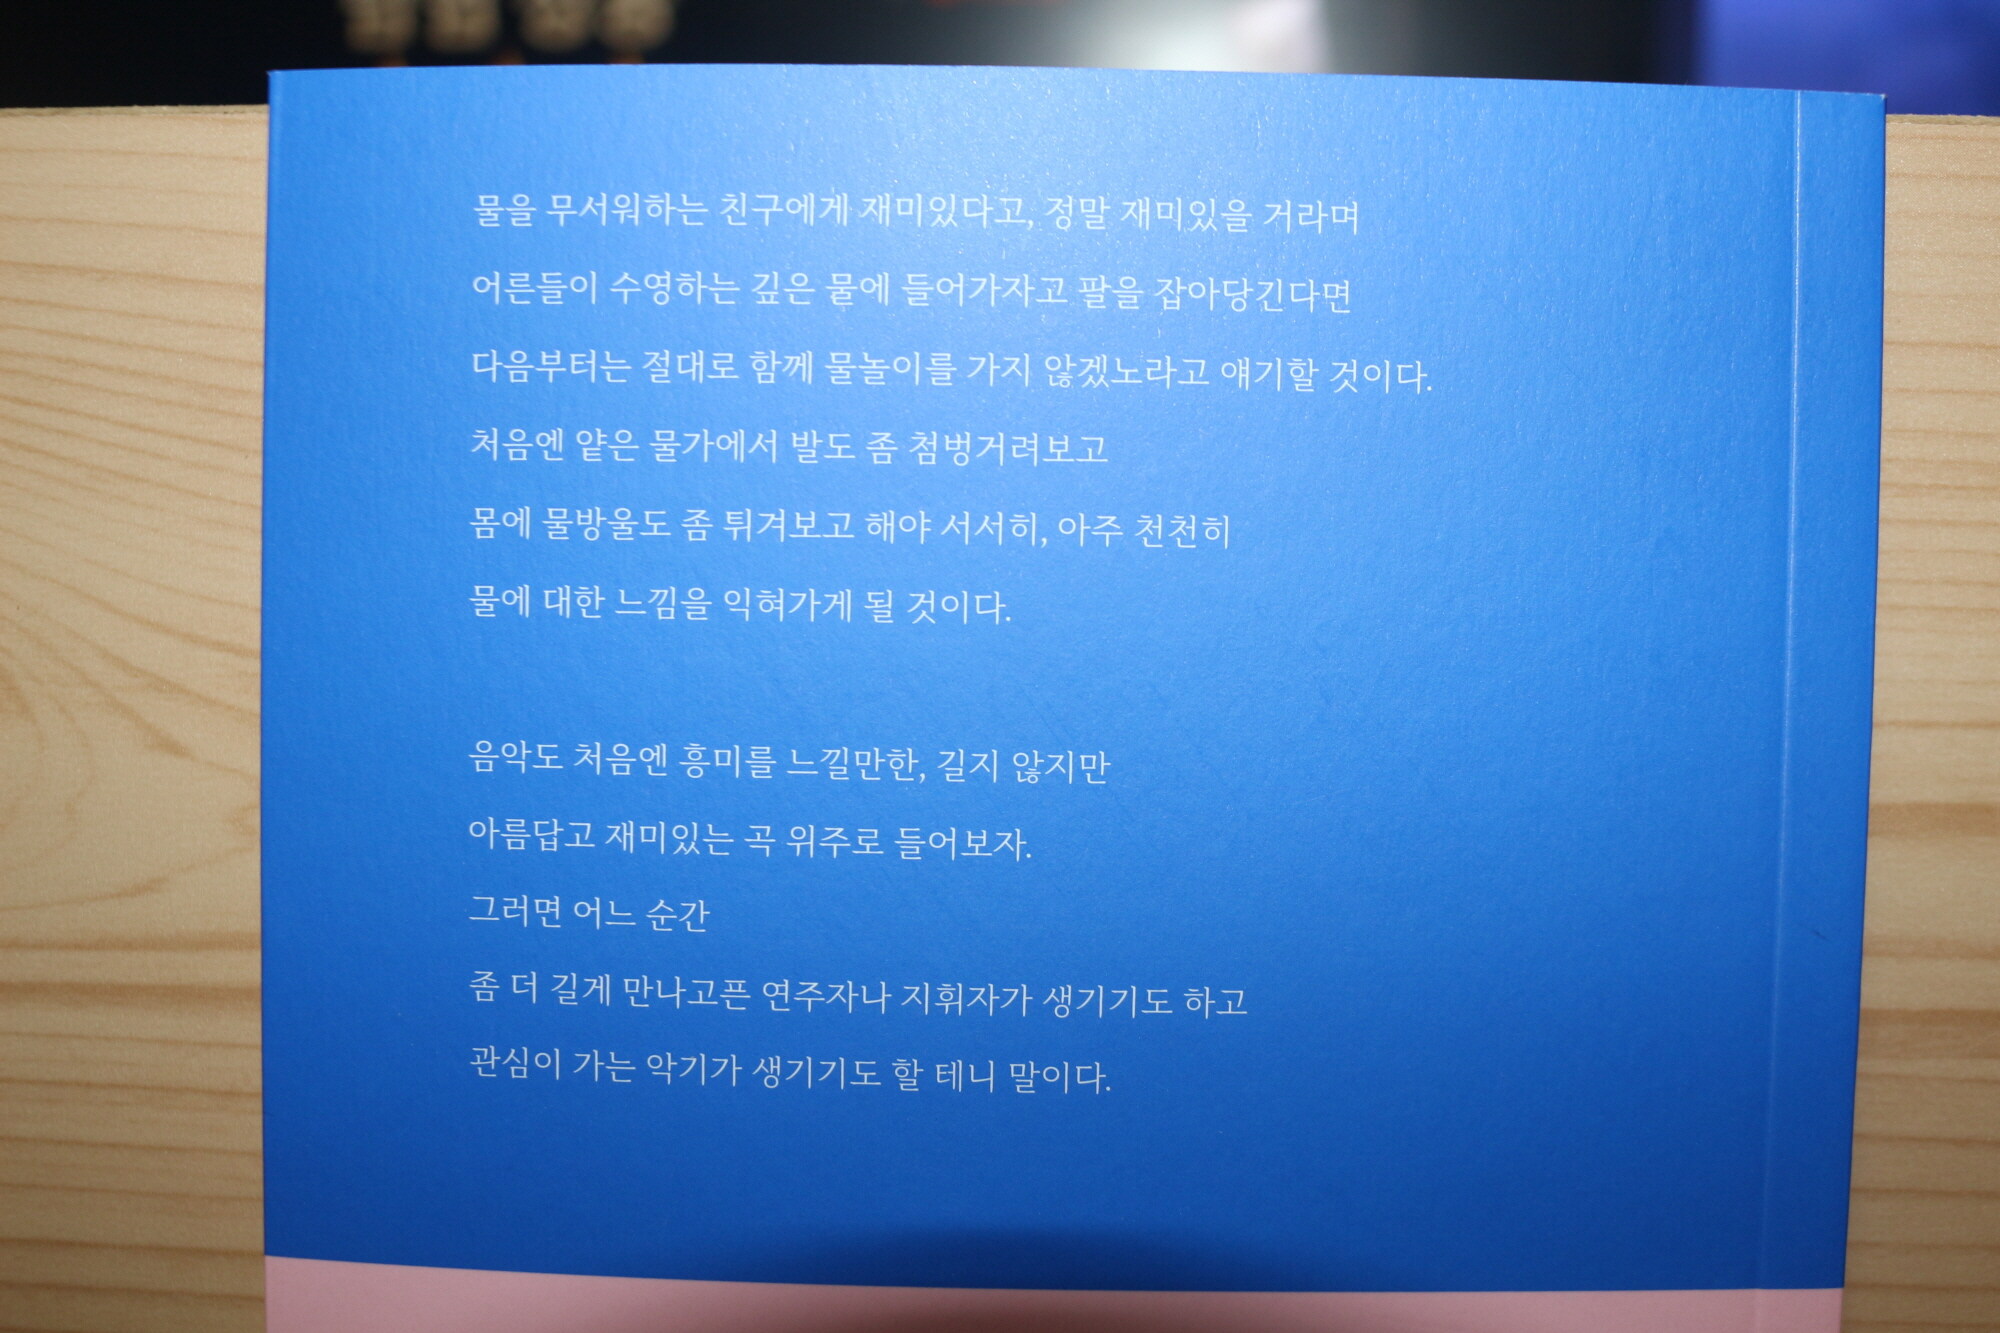 물을 무서워하는 친구에게 재미있다고, 정말 재미있을 거라며
어른들이 수영하는 깊은 물에 들어가자고 팔을 잡아당긴다면
다음부터는 절대로 함께 물놀이를 가지 않겠노라고 얘기할 것이다.
처음엔 얕은 물가에서 발도 좀 첨벙거려보고
몸에 물방울도 좀 튀겨보고 해야 서서히, 아주 천천히
물에 대한 느낌을 익혀가게 될 것이다.
음악도 처음엔 흥미를 느낄만한, 길지 않지만
아름답고 재미있는 곡 위주로 들어보자.
그러면 어느 순간
좀 더 길게 만나고픈 연주자나 지휘자가 생기기도 하고
관심이 가는 악기가 생기기도 할 테니 말이다.